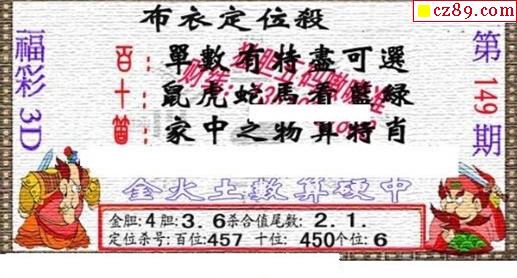 cz89.com
布衣定位殺
福彩3D
第149期
百：單數有特盡可選
十：鼠虎蛇馬看藍綠
箇：家中之物算特肖
金火土數算硬中
金胆:4胆:3.6杀合值尾数:2.1.
定位杀号:百位:457 十位: 450个位:6